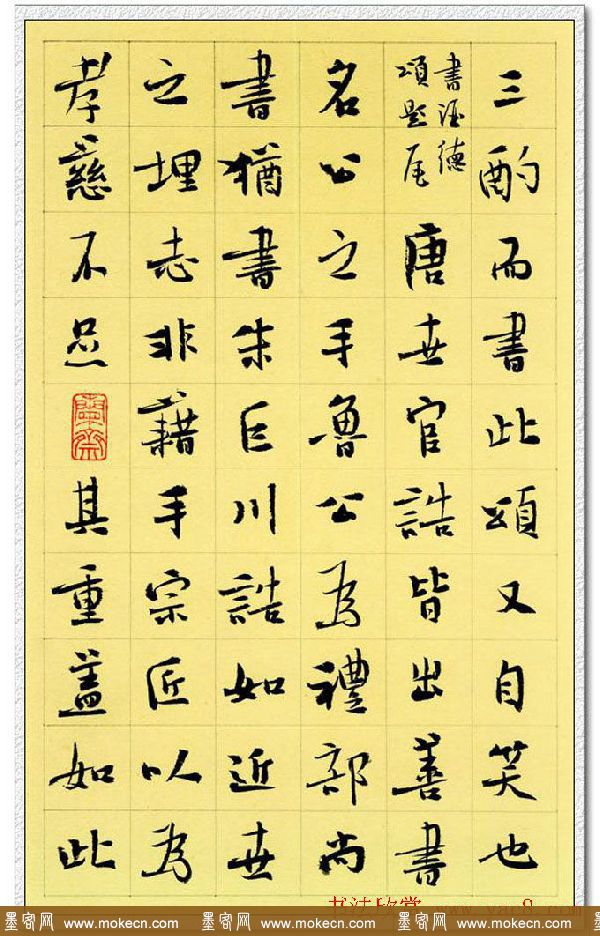 三酌而書此頌又自笑也
書酒德
頌題尾
唐世官誥皆出善書
名公之手魯公為禮部尚
書猶書朱巨川誥如近世
之埋志非藉手宗匠以為
孝慈不
其重蓋如此
书法欣赏 www.yac8.com
墨客网 www.mokecn.com 墨客网 www.mokecn.com 墨客网 www.mokecn.com